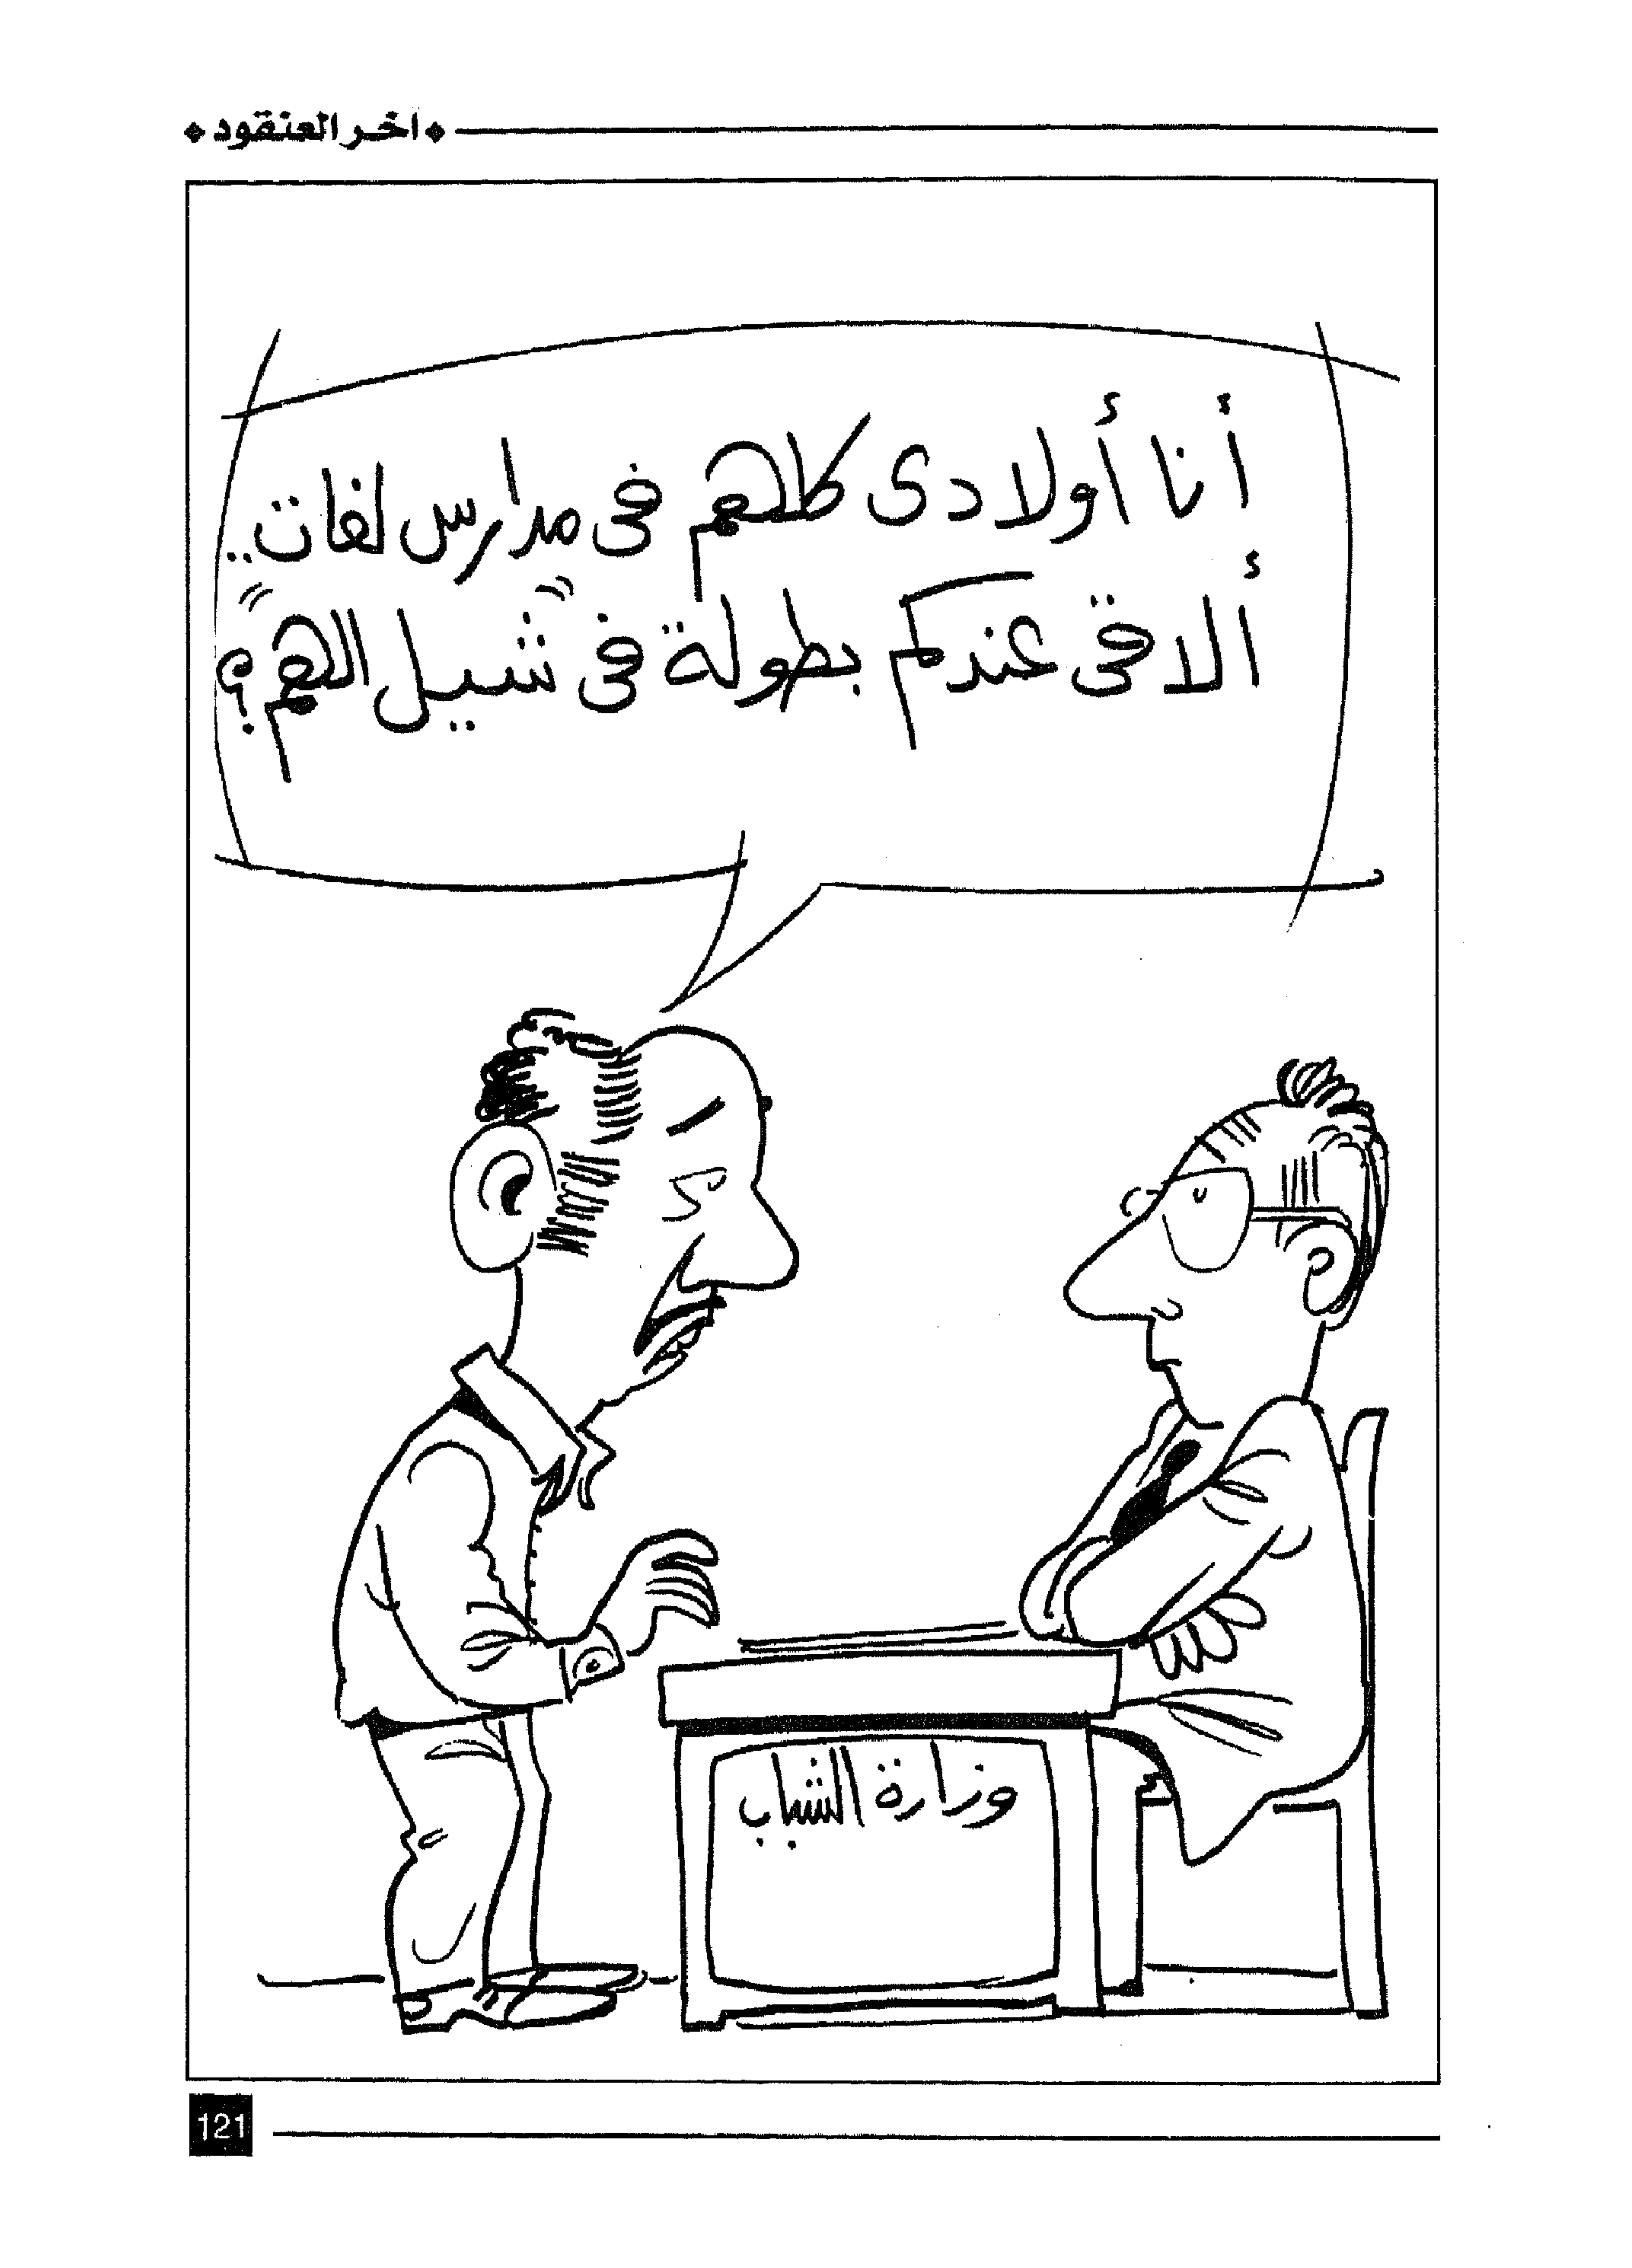 ❖ آخر العنقود ❖
أنا أولادى كلهم فى مدارس لغات..
ألاقى عندكم بطولة فى "شيل الهم"؟
وزارة الشباب
121